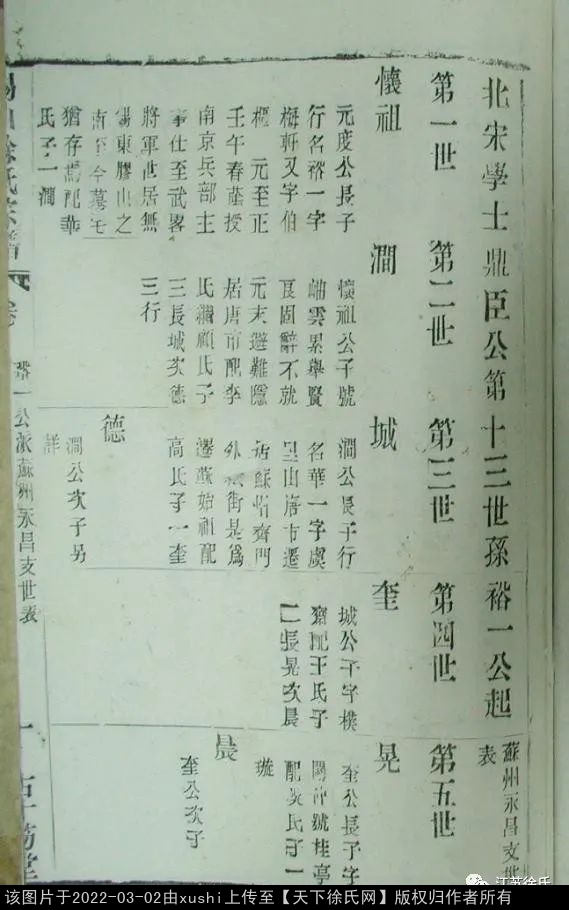 北宋學士鼎臣公第十三世孫裕一公起
蘇州永昌支世
表
第一世
第二世
第三世
第四世
第五世
懷祖
元度公長子
行名裕一字
梅軒又字伯
樞 元至正
壬午春蔭授
南京兵部主
事仕至武畧
將軍世居無
錫東膠山之
南至今墓
猶存 配華
氏子一澗
澗
懷祖公子號
岫雲累舉賢
良固辭不就
元末避難隱
居唐市配李
氏繼顧氏子
三長城次德
三行
城
澗公長子行
名華一字虞
山唐市遷
居蘇 齊門
外 街是爲
遷蘇始祖配
高氏子一奎
德
澗公次子另
詳
奎
城公子字樸
齋配王氏子
二長晃次晨
晃
奎公長子字
陽冲號桂亭
配吳氏子一
璇
晨
奎公次子
裕一公派蘇州永昌支世表
江蘇徐氏
该图片于2022-03-02由xushi上传至【天下徐氏网】版权归作者所有